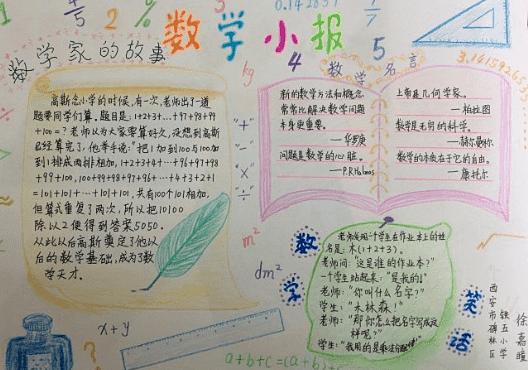 数学小报
数学家的故事
高斯念小学的时候,有一次,老师出了道
题要同学们算,题目是:1+2+3+…+97+98+99
+100=?老师以为大家要算好久,没想到高斯
已经算完了,他举手说:"把1加到100与100加
到1排成两排相加,1+2+3+4+…+96+97+98
+99+100,100+99+98+97+96+…+4+3+2+1
=101+101+…+101+101,共有100个101相加,
但算式重复了两次,所以把10100
除以2便得到答案5050.
从此以后高斯奠定了他以
后的数学基础,成为了数
学天才.
数学名言
新的数学方法和概念,
常常比解决数学问题
本身更重要.
——华罗庚
问题是数学的心脏.
——P.R.Halmos
上帝是几何学家.
——柏拉图
数学是无穷的科学.
——赫尔曼外尔
数学的本质在于它的自由.
——康托尔
数学笑话
老师发现一个学生在作业本上的姓
名是:木(1+2+3).
老师问:"这是谁的作业本?"
一个学生站起来:"是我的!"
老师:"你叫什么名字?"
学生:"木林森!"
老师:"那你怎么把名字写成这
样呢?"
学生:"我用的是乘法分配律!"
西安市碑林区
铁五小学
徐嘉
2
%
5
0.142857
7/7
4
5
3.1415926
kg
"+"
"-"
"×"
"÷"
m²
dm²
x+y
?
a+b+c=(a+b)+